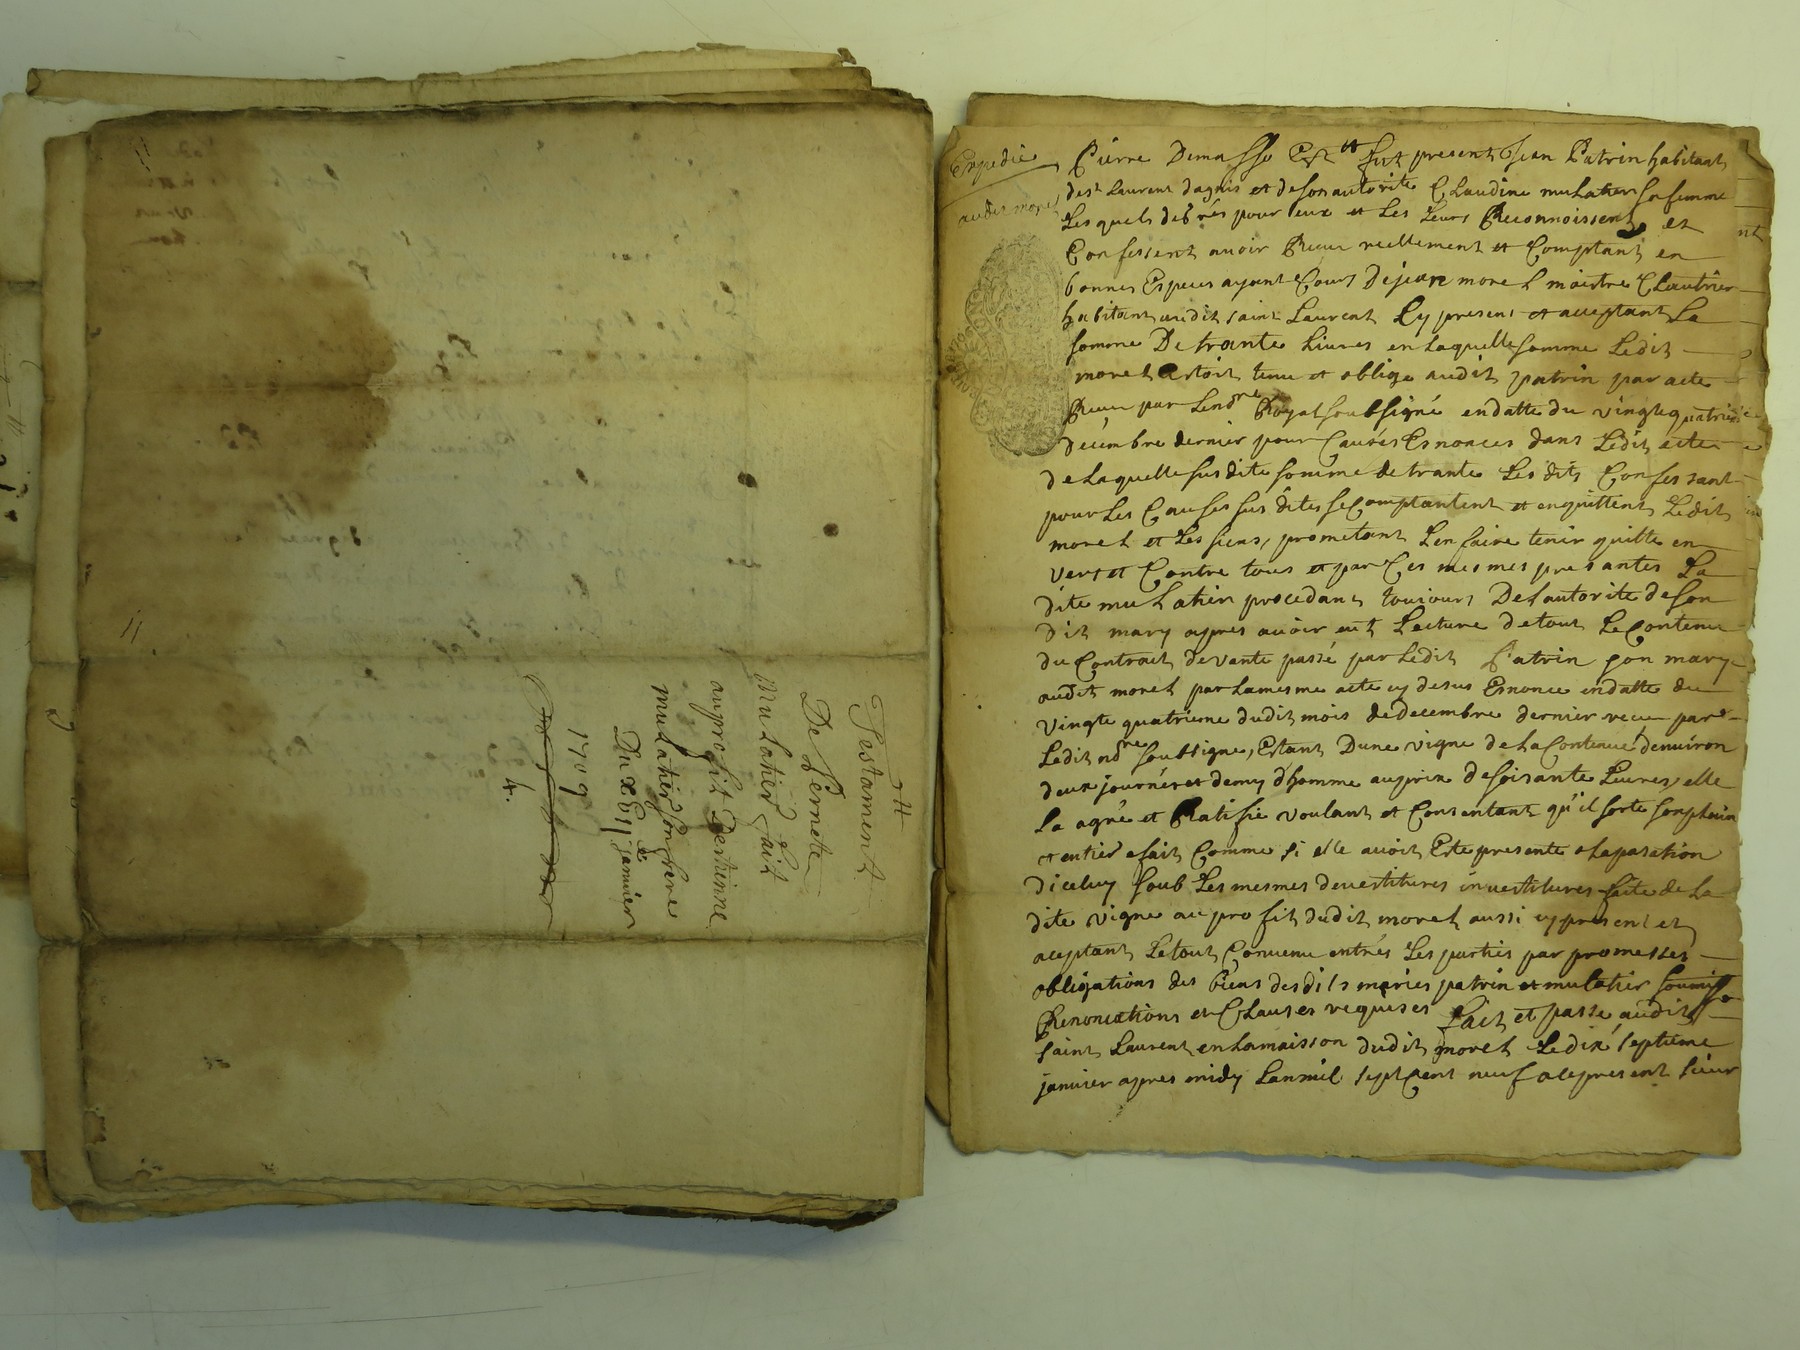 Testament
De Pernette
Mulatier fait
au profit destienne
mulatier son frere
Du xEII janvier
1709
4.
11
Expedié
audit morel
Pierre Demasso Est fut present Jean Patrin habitant
de st Laurent dagnis et de son autorite Claudine mulatier sa femme
Lesquels de grés pour eux et Les Leurs Reconnoissent et
Confessent avoir Receu reellement et Comptant en
bonnes Especes ayent Cours De jean morel maistre
habitant audit saint Laurent Cy present et acceptant La
somme De trante Livres en Laquelle somme Ledit
morel Estoit tenu et oblige audit patrin par acte
Receu par Le nore Royal soubsigné en datte du vingte quatrie
decembre dernier pour Causes Enonces dans Ledit acte
de Laquelle susdite somme de trante Les dits Confessant
pour Les Causes sus dites se Comptantent et enquittent Ledit
morel et Les siens, prometant L'en faire tenir quitte en
vers et Contre tous et par Ces mesmes presantes La
dite mulatier procedant toujours De L autorite de son
dit mary apres avoir eut Lecture de tout Le Contenu
du Contract de vante passé par Ledit Patrin son mary
audit morel par La mesme acte cy desus Enonce en datte du
vingte quatrieme dudit mois de decembre dernier receu par
Ledit nore soubsigne, Estant Dune vigne de La Contenue denviron
deux journées et demy d'homme au prix de soisante Livres, elle
La agrée et Ratifie voulant et Consentant qu'il sorte son plein
et entier efait Comme si elle avoit Este presente a La pasation
diceluy soub Les mesmes devestitures investitures faite de La
dite vigne au profit dudit morel aussi cy present et
aceptant Le tout Convenu entrés Les parties par promesses
obligations des biens desdits maries patrin et mulatier soumiss
Renonciations et Clauses requises fait et passé audit
saint Laurent en La maisson dudit morel Le dix septieme
janvier apres midy Lan mil sept Cent neuf a ce present sieur